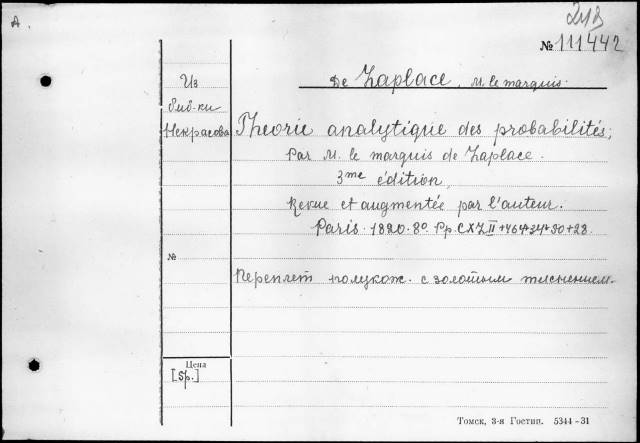 A
218
№ 111442
Из
биб-ки
Некрасова
De Laplace, M. le marquis.
Theorie analytique des probabilités,
Par M. le marquis de Laplace.
3me édition,
Revue et augmentée par l'auteur.
Paris. 1820. 8º. Pp. CXLII+464+34+50+28.
№
Переплет полукож. с золотым тиснением.
Цена
[5р.]
Томск, 3-я Гостип. 5344-31